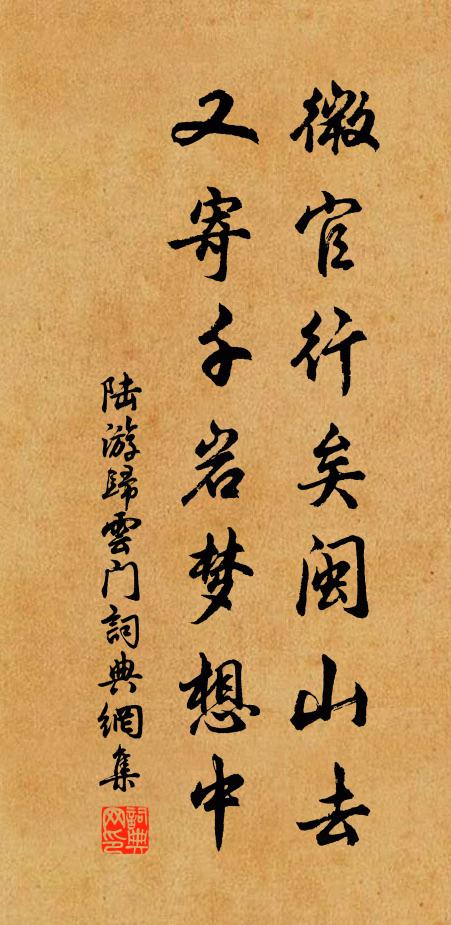 微官行矣闽山去
又寄千岩梦想中
陆游歸雲门詞典網集
詞典网印